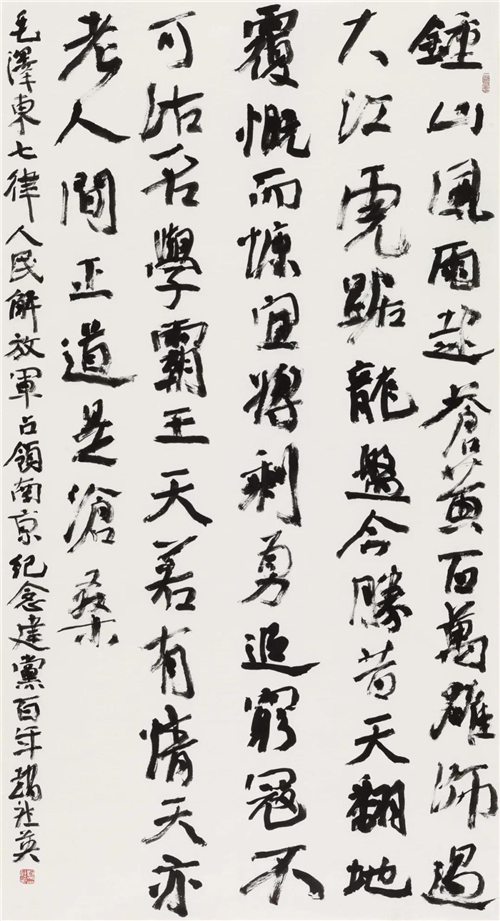 鍾山風雨起蒼黄百萬雄師過
大江虎踞龍盤今勝昔天翻地
覆慨而慷宜將剩勇追窮寇不
可沽名學霸王天若有情天亦
老人間正道是滄桑
毛澤東七律人民解放軍占領南京紀念建黨百年